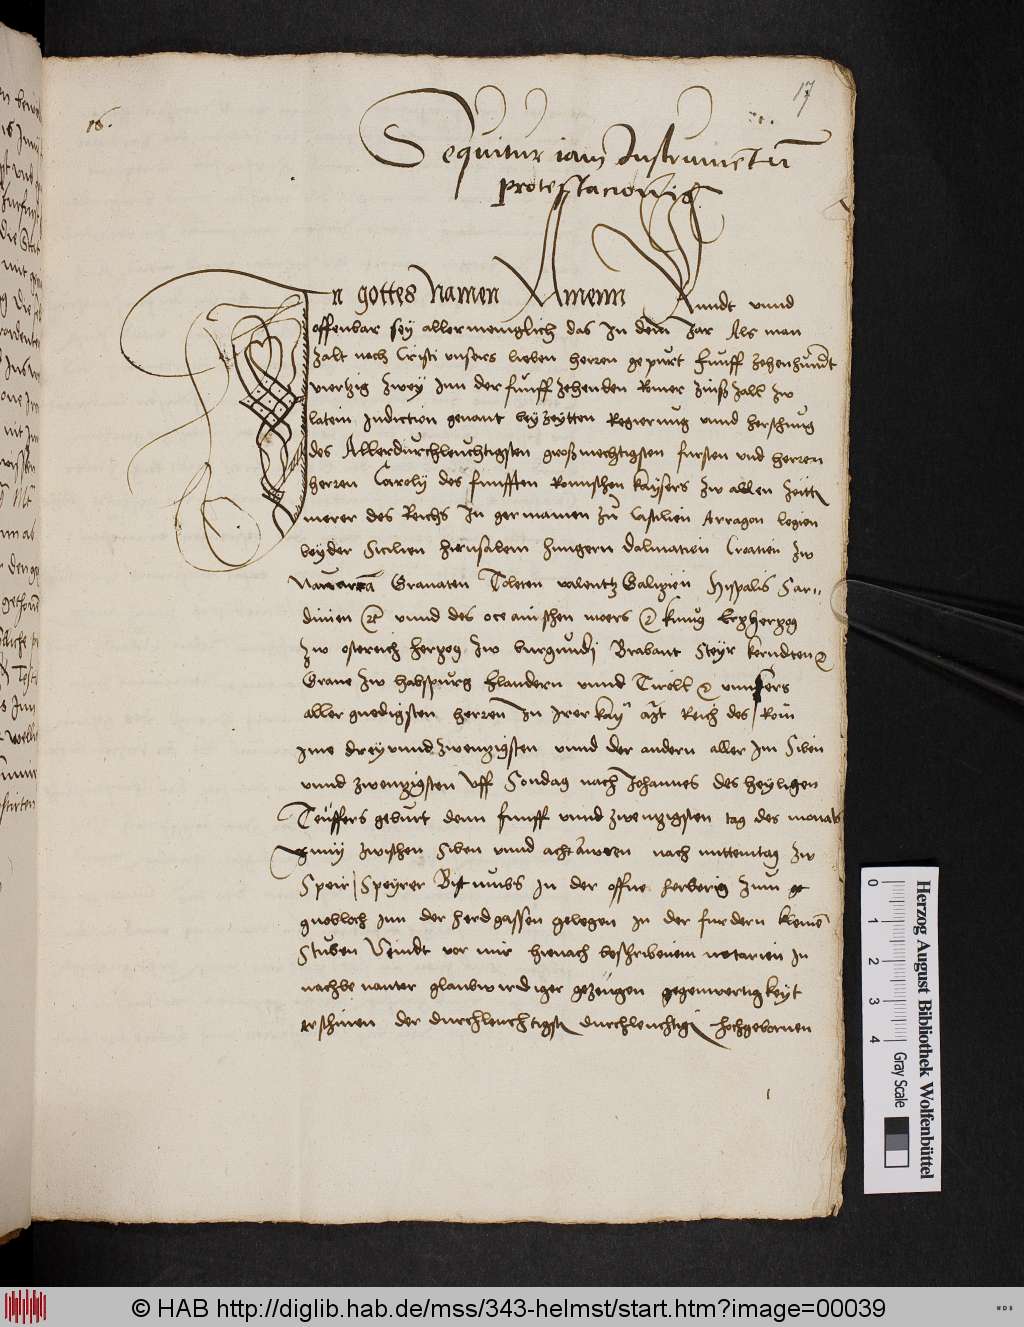 16.
17
Sequitur iam Instrumentū
protestacionis
In gottes Namen Amenn Kundt vnnd
offenbar sey allermeniglich das Jn dem Jar Als man
zalt noch Cristi vnsers lieben herren gepurt funff zehenhundt
viertzig zwey Jnn der funffzehenden Romer zinß zall zw
latein Jndiction genant bey zeytten Regierung vnnd herschung
des Allerdurchleuchtigsten großmechtigsten fursten vnd herren
herren Carolij des funfften Romischen kaysers zw allen Zeittē
merer des Reichs Jn germanien zu Castilien Arragon legion
beyder Sicilien hierusalem hungern dalmatien Croatien zw
Nauarra Granaten Toleten valentz Galizien Hispalis Sar-
dinien vnnd des oceanischen meers kunig Ertzhertzog
zw ostereich hertzog zw burgundj Brabant Steyr kerndten
Graue zw habspurg flandern vnnd Tiroll vnnsers
aller gnedigsten herren Jn Jrer kay Reich des Rom
Jme dreyvnndzwentzigsten vnnd der andern aller Jm Siben
vnnd zwentzigsten Vff Sondag nach Johannes des heyligen
Teuffers geburt denn funff vnnd zwentzigsten tag des monats
Junij zwischen Siben vnnd acht awren nach mittemtag zw
Speir Speyrer Bistumbs Jn der offne herberig zum
knobloch Jnn der herdgassen gelegen Jn der furdern kleinē
Stuben Seindt vor mir hienach beschribenem notarien Jn
nachbenanter glaubwirdiger gezeugen gegenwertigkeyt
erschinen der durchleuchtigst durchleuchtig hochgebornen
Herzog August Bibliothek Wolfenbüttel
0 1 2 3 4
Gray Scale
© HAB http://diglib.hab.de/mss/343-helmst/start.htm?image=00039
WDB